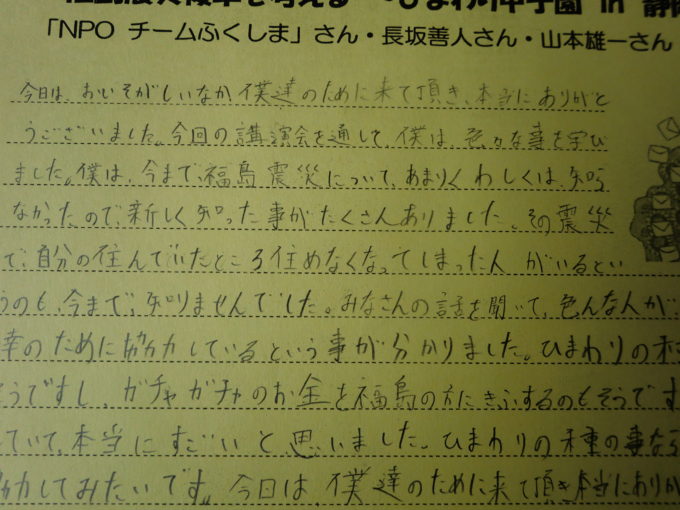 災復興を考える ひまわり甲子園 in 静岡
「NPO チームふくしま」さん・長坂善人さん・山本雄一さん
今日は、おいそがしいなか、僕達のために来て頂き、本当にありがと
うございました。今回の講演会を通して、僕は、色々な事を学び
ました。僕は、今まで、福島震災について、あまりくわしくは、知ら
なかったので、新しく知った事がたくさんありました。その震災
で、自分の住んでいたところ住めなくなってしまった人がいるとい
うのも、今まで、知りませんでした。みなさんの話を聞いて、色んな人が、
幸のために協力しているという事が分かりました。ひまわりの種
そうですし、ガチャガチャのお金を福島の方にきふするのもそうです
ていて、本当にすごいと思いました。ひまわりの種の事なら
協力してみたいです。今日は、僕達のために来て頂き本当にありが